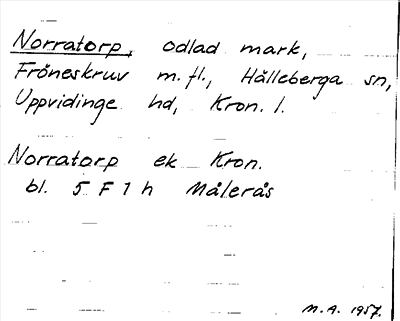 Norratorp, odlad mark,
Fröneskruv m.fl., Hälleberga sn,
Uppvidinge hd, Kron. l.
Norratorp ek Kron.
bl. 5 F 1 h Målerås
M.A. 1957.